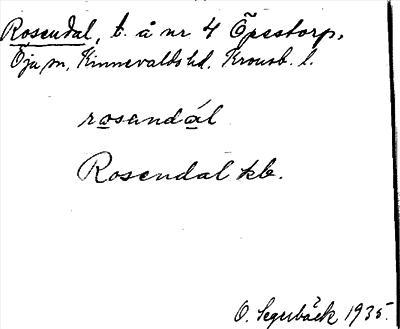 Rosendal, t. å nr 4 Öpestorp,
Öja sn, Kinnevalds hd. Kronob. l.
rosendál
Rosendal kb.
O. Segerbäck 1935.